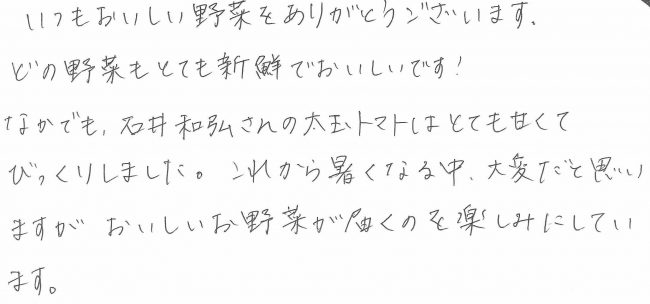 いつもおいしい野菜をありがとうございます。
どの野菜もとても新鮮でおいしいです！
なかでも、石井和弘さんの大玉トマトはとても甘くて
びっくりしました。これから暑くなる中、大変だと思い
ますが おいしいお野菜が届くのを楽しみにしてい
ます。